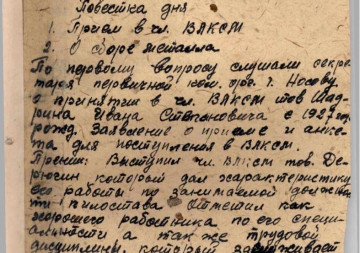 Повестка дня
1. Прием в чл. ВЛКСМ
2. О сборе металла
По первому вопросу слушали секре-
таря первичной ком. орг. т. Носову
о принятии в чл. ВЛКСМ тов Шад-
рина Ивана Степановича с 1927 г.
рожд. Заявление о приеме и анке-
та для поступления в ВЛКСМ.
Прения: Выступил чл. ВЛКСМ тов. Де-
рюгин который дал характеристику
его работы по занимаемой должнос-
ти пилостава Отметил как
хорошего работника по его специ-
альности а так же трудовой
дисциплины, который заслуживает